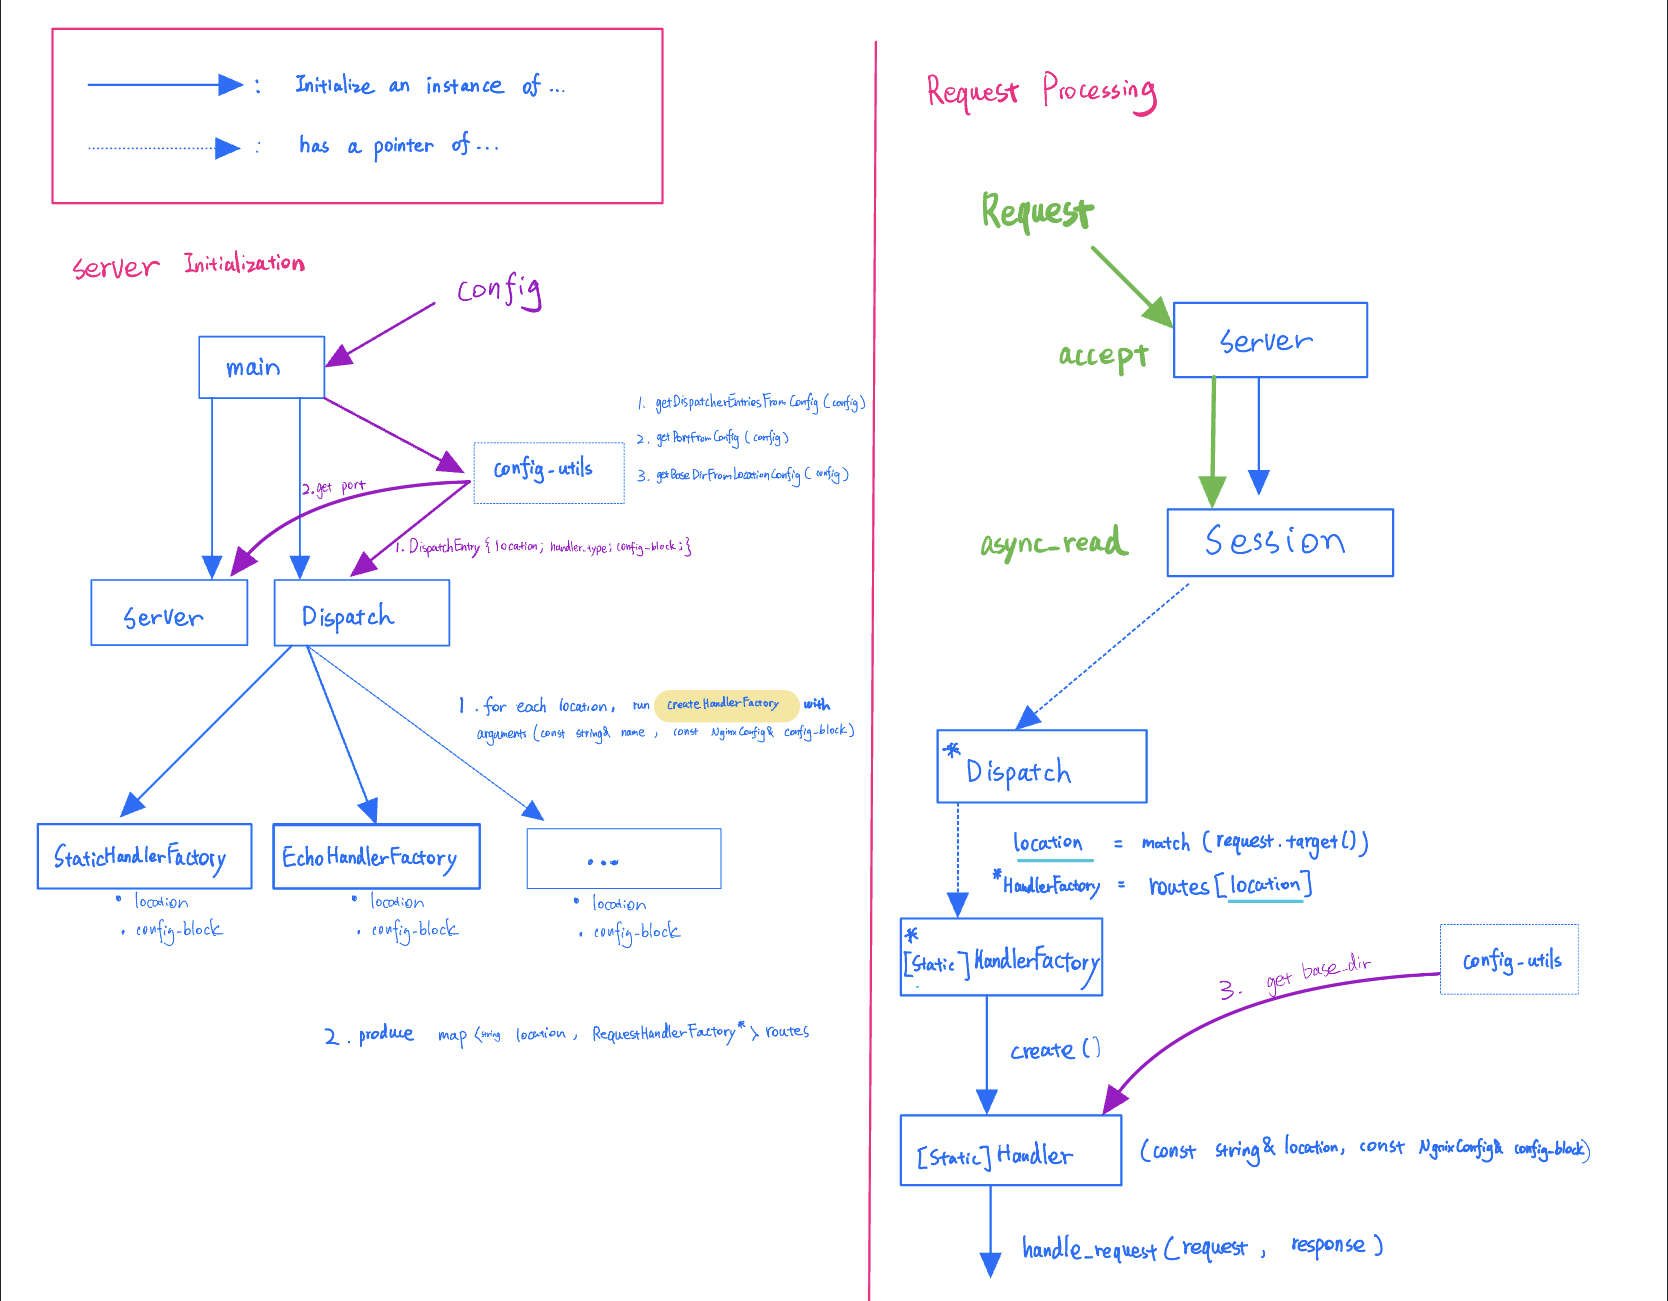 : Initialize an instance of ...
: has a pointer of ...
Server Initialization
config
main
1. getDispatcherEntriesFromConfig (config)
2. getPortFromConfig (config)
3. getBaseDirFromLocationConfig (config)
config-utils
2. get port
1. DispatchEntry { location; handler_type; config-block; }
Server
Dispatch
1. for each location, run createHandlerFactory with
arguments (const string& name, const NginxConfig& config-block)
StaticHandlerFactory
• location
• config-block
EchoHandlerFactory
• location
• config-block
...
• location
• config-block
2. produce map <string location, RequestHandlerFactory*> routes
Request Processing
Request
accept
Server
async_read
Session
* Dispatch
location = match (request.target())
*HandlerFactory = routes [location]
*
[Static] HandlerFactory
config-utils
3. get base_dir
create ()
[Static] Handler
(const string& location, const NginxConfig& config-block)
handle_request (request, response)